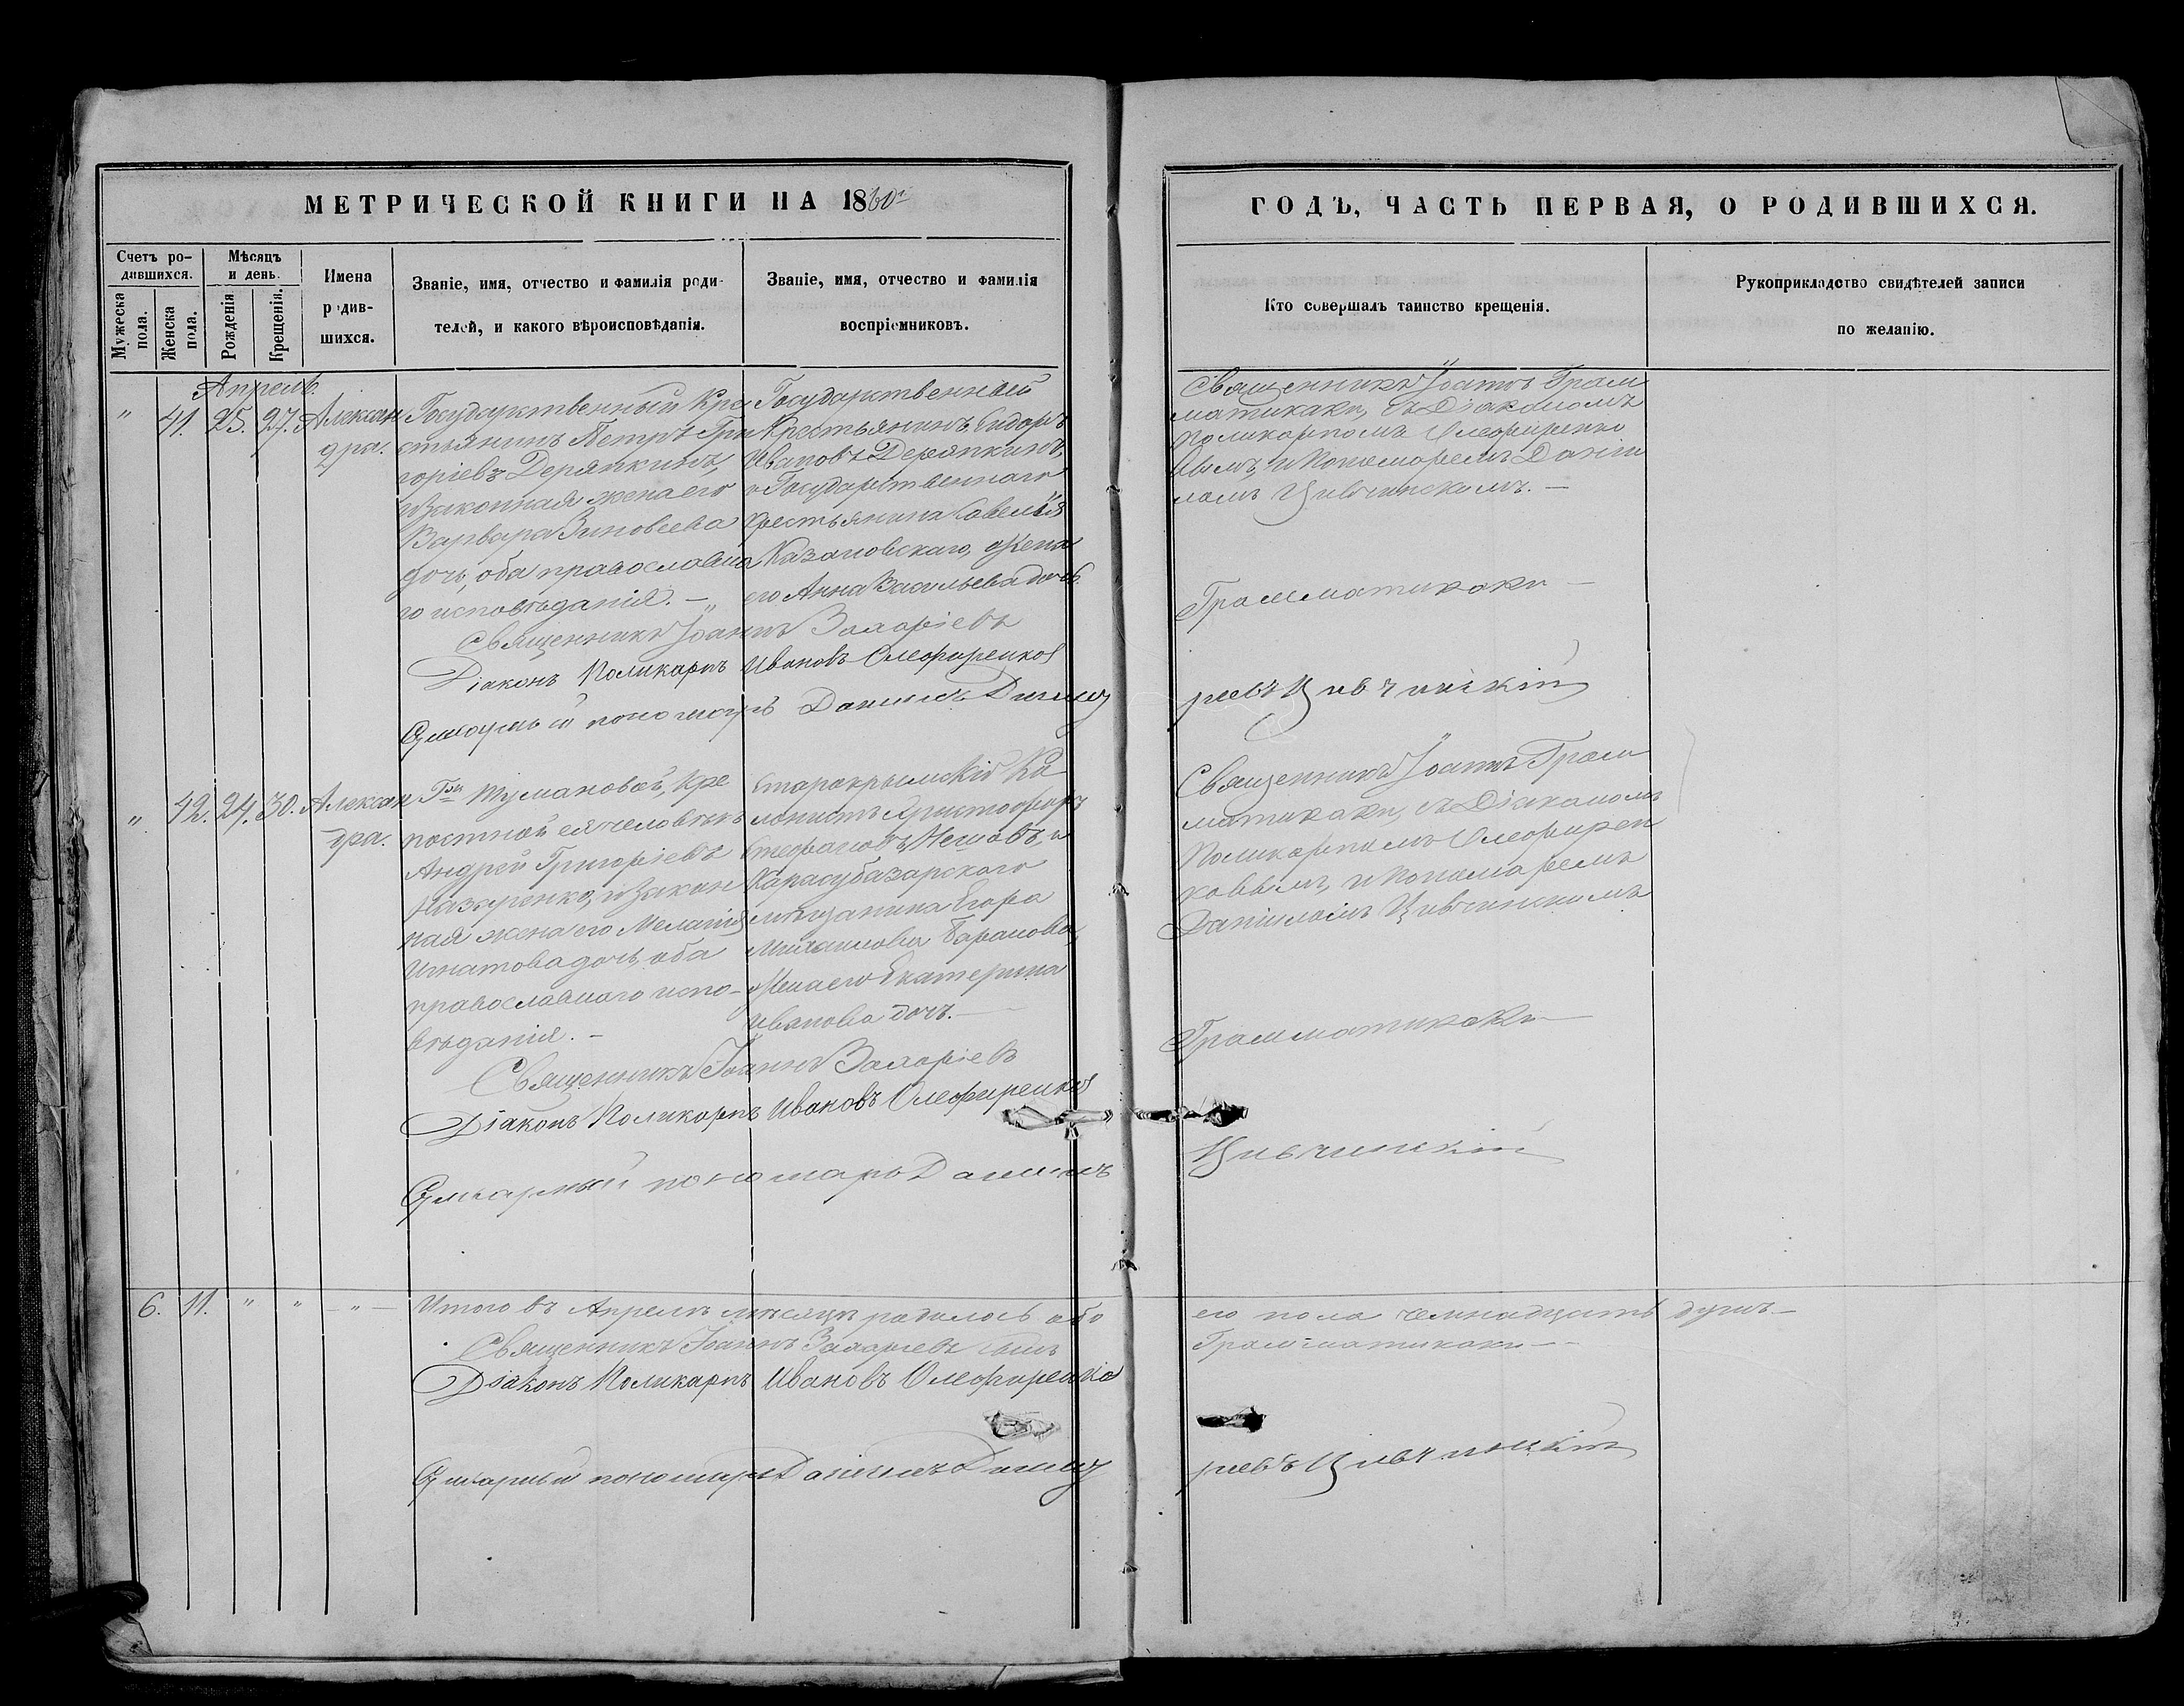 МЕТРИЧЕСКОЙ КНИГИ НА 1860г
ГОДЪ, ЧАСТЬ ПЕРВАЯ, О РОДИВШИХСЯ.
Счетъ ро-
дившихся.
Мужеска
пола.
Женска
пола.
Мѣсяцъ
и день.
Рожденія
Крещенія.
Имена
родив-
шихся.
Званіе, имя, отчество и фамилія роди-
телей, и какого вѣроисповѣданія.
Званіе, имя, отчество и фамилія
воспріемниковъ.
Кто совершалъ таинство крещенія.
Рукоприкладство свидѣтелей записи
по желанію.
Апрель.
" 41. 25. 27. Алексан
дра.
Государственный Кре
стьянинъ Петръ Гри
горіевъ Деряпкинъ,
и законная жена его
Варвара Зиновіева
дочь, оба православна
го исповѣданія. —
Государственный
Крестьянинъ Сидоръ
Ивановъ Деряпкинъ,
и Государственнаго
Крестьянина Савелія
Казановскаго, жена
его Анна Васильева дочь.
Священникъ Іоаннъ Грам
матикаки, съ Діакономъ
Поликарпомъ Олефиренко
вымъ, и Пономаремъ Данiи
ломъ Цивчинскимъ. —
Священникъ Іоаннъ Захаріевъ
Грамматикаки —
Діаконъ Поликарпъ Ивановъ Олефиренков
пономарь Даниилъ
ревъ Цивчинскій
" 42. 24. 30. Алексан
дра.
Г-жи Тумановой, Кре
постной ея человѣкъ
Андрей Григоріевъ
Назаренко, и закон
ная жена его Меланія
Игнатова дочь, оба
православнаго испо-
вѣданія. —
Старокрымскій Ко
лонистъ Христофоръ
Стефановъ, и
Карасубазарскаго
мѣщанина Егора
Михаилова Баранова,
жена его Екатерина
Иванова дочь. —
Священникъ Іоаннъ Грам
матикаки, съ Діакономъ
Поликарпомъ Олефирен
ковымъ, и Пономаремъ
Даниломъ Цивчинскимъ
Священникъ Іоаннъ Захаріевъ
Грамматикаки —
Діаконъ Поликарпъ Ивановъ Олефиренков
пономарь Даниилъ
Цивчинскій
6. 11. " " " — Итого въ Апрелѣ мѣсяцѣ родилось обо
его пола семнадцать душъ —
Священникъ Іоаннъ Захаріевъ сынъ
Грамматикаки —
Діаконъ Поликарпъ Ивановъ Олефиренков
пономарь Даниилъ
ревъ Цивчинскій